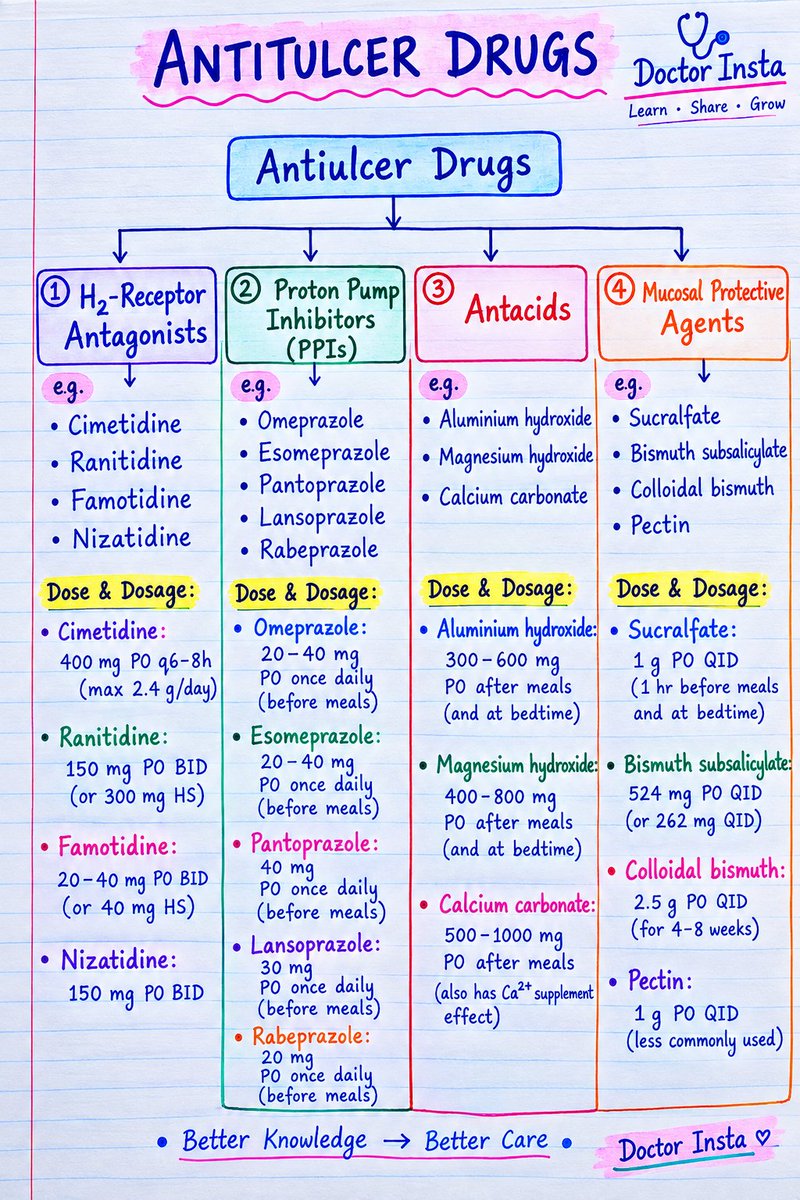 ANTITULCER DRUGS
Doctor Insta
Learn • Share • Grow
Antiulcer Drugs
① H₂-Receptor
Antagonists
e.g.
• Cimetidine
• Ranitidine
• Famotidine
• Nizatidine
Dose & Dosage:
• Cimetidine:
400 mg PO q6-8h
(max 2.4 g/day)
• Ranitidine:
150 mg PO BID
(or 300 mg HS)
• Famotidine:
20-40 mg PO BID
(or 40 mg HS)
• Nizatidine:
150 mg PO BID
② Proton Pump
Inhibitors
(PPIs)
e.g.
• Omeprazole
• Esomeprazole
• Pantoprazole
• Lansoprazole
• Rabeprazole
Dose & Dosage:
• Omeprazole:
20-40 mg
PO once daily
(before meals)
• Esomeprazole:
20-40 mg
PO once daily
(before meals)
• Pantoprazole:
40 mg
PO once daily
(before meals)
• Lansoprazole:
30 mg
PO once daily
(before meals)
• Rabeprazole:
20 mg
PO once daily
(before meals)
③ Antacids
e.g.
• Aluminium hydroxide
• Magnesium hydroxide
• Calcium carbonate
Dose & Dosage:
• Aluminium hydroxide:
300-600 mg
PO after meals
(and at bedtime)
• Magnesium hydroxide:
400-800 mg
PO after meals
(and at bedtime)
• Calcium carbonate:
500-1000 mg
PO after meals
(also has Ca²⁺ supplement
effect)
④ Mucosal Protective
Agents
e.g.
• Sucralfate
• Bismuth subsalicylate
• Colloidal bismuth
• Pectin
Dose & Dosage:
• Sucralfate:
1 g PO QID
(1 hr before meals
and at bedtime)
• Bismuth subsalicylate:
524 mg PO QID
(or 262 mg QID)
• Colloidal bismuth:
2.5 g PO QID
(for 4-8 weeks)
• Pectin:
1 g PO QID
(less commonly used)
• Better Knowledge → Better Care •
Doctor Insta ♡